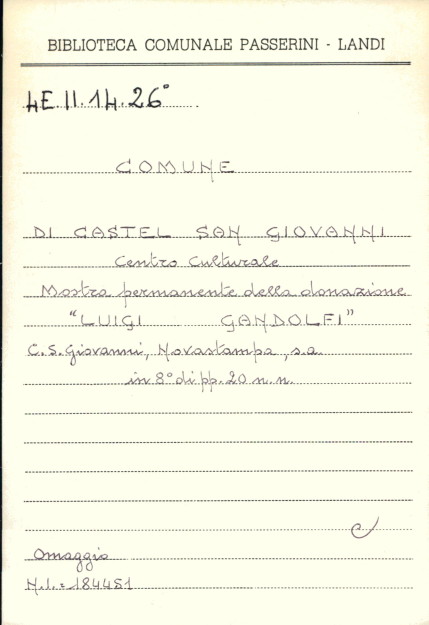 BIBLIOTECA COMUNALE PASSERINI - LANDI
4E II.14.26°
COMUNE
DI CASTEL SAN GIOVANNI
Centro Culturale
Mostra permanente della donazione
"LUIGI GANDOLFI"
C.S. Giovanni, Novastampa, s.a.
in 8° di pp. 20 n.n.
Omaggio
N.I.= 184451